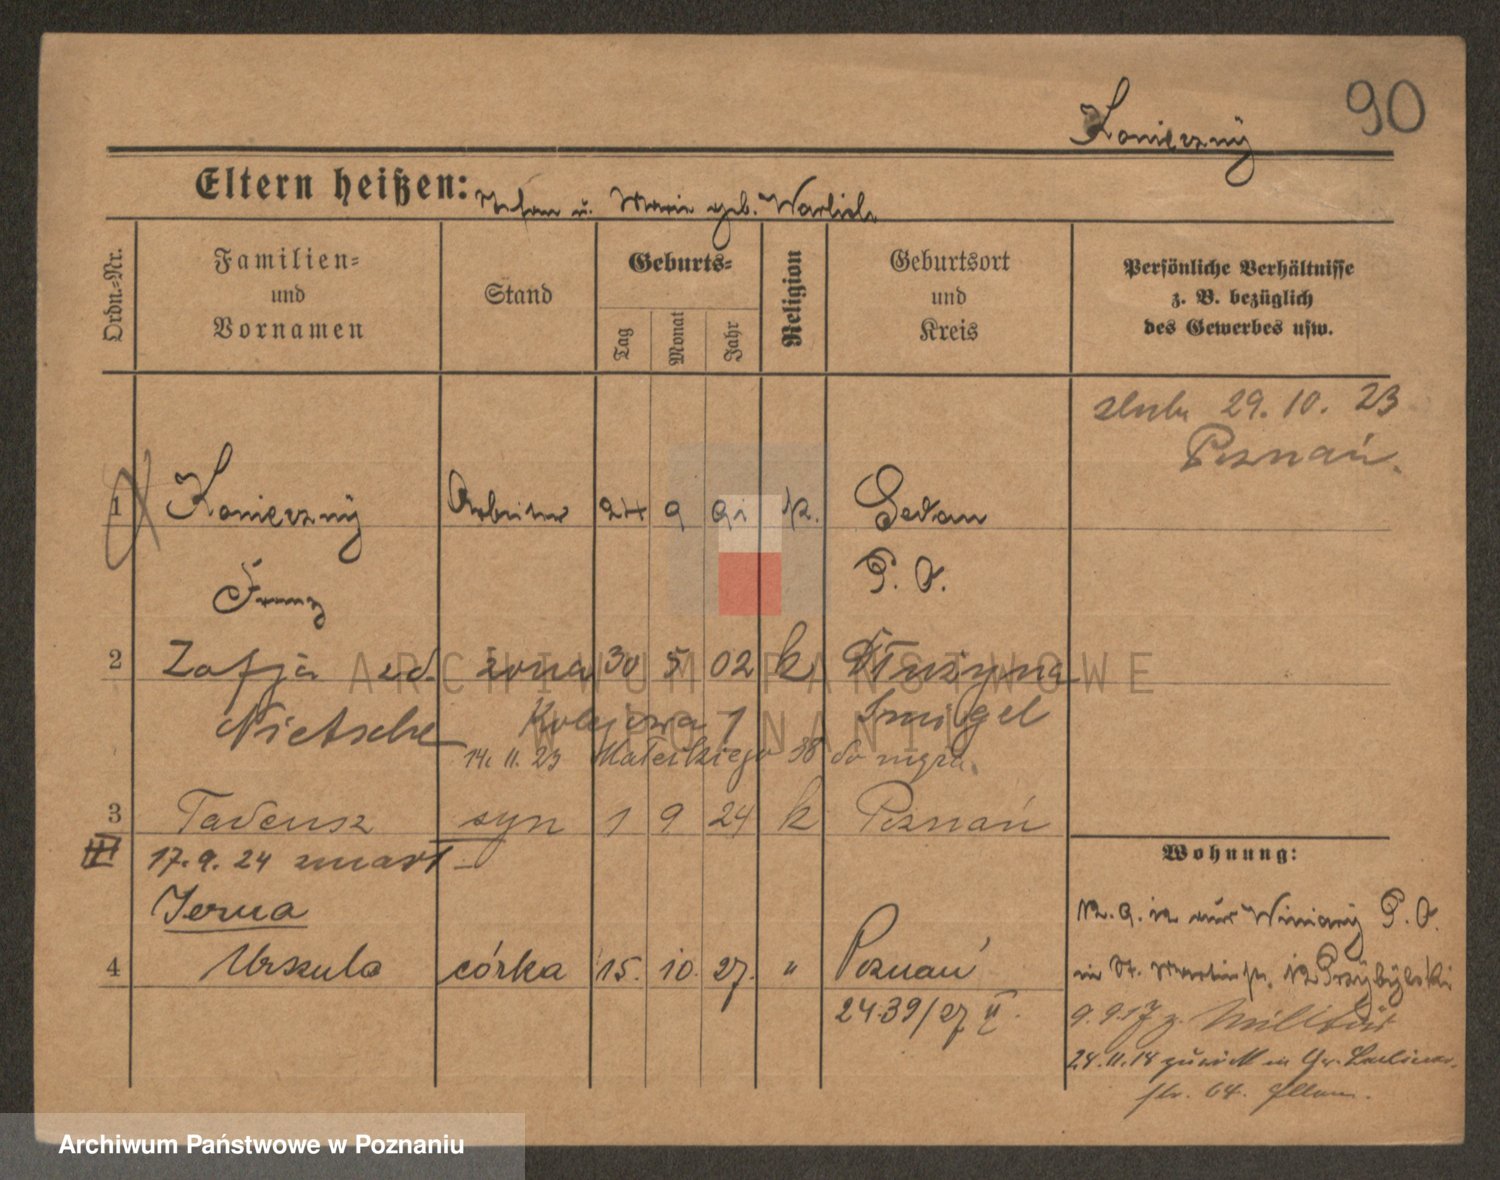 90
Konieczny
Eltern heißen: Stefan u. Marie geb. Warlich
Ordn.-Nr.
Familien-
und
Vornamen
Stand
Geburts-
Tag
Monat
Jahr
Religion
Geburtsort
und
Kreis
Persönliche Verhältnisse
z. B. bezüglich
des Gewerbes usw.
29. 10. 23
Poznań.
1 Konieczny Arbeiter 24 9 91 k. Sedan
Franz P. O.
2 Zofja zd. żona 30 5 02 k Drużyna
Nietsche Kolejowa 1 Śmigel
14. 11. 23 Małeckiego 38
3 Tadeusz syn 1 9 24 k Poznań
17. 9. 24 zmarł
Wohnung:
12. 9. 12 aus Winiary P. O.
4 Urszula córka 15. 10. 27. " Poznań
in St. Martinstr. 12 Przybylski
24.39/27 II.
9. 9 17 z. Militär
24. 11. 18 zurück in Gr. Berliner-
str. 64.
ARCHIWUM PAŃSTWOWE
W POZNANIU
Archiwum Państwowe w Poznaniu